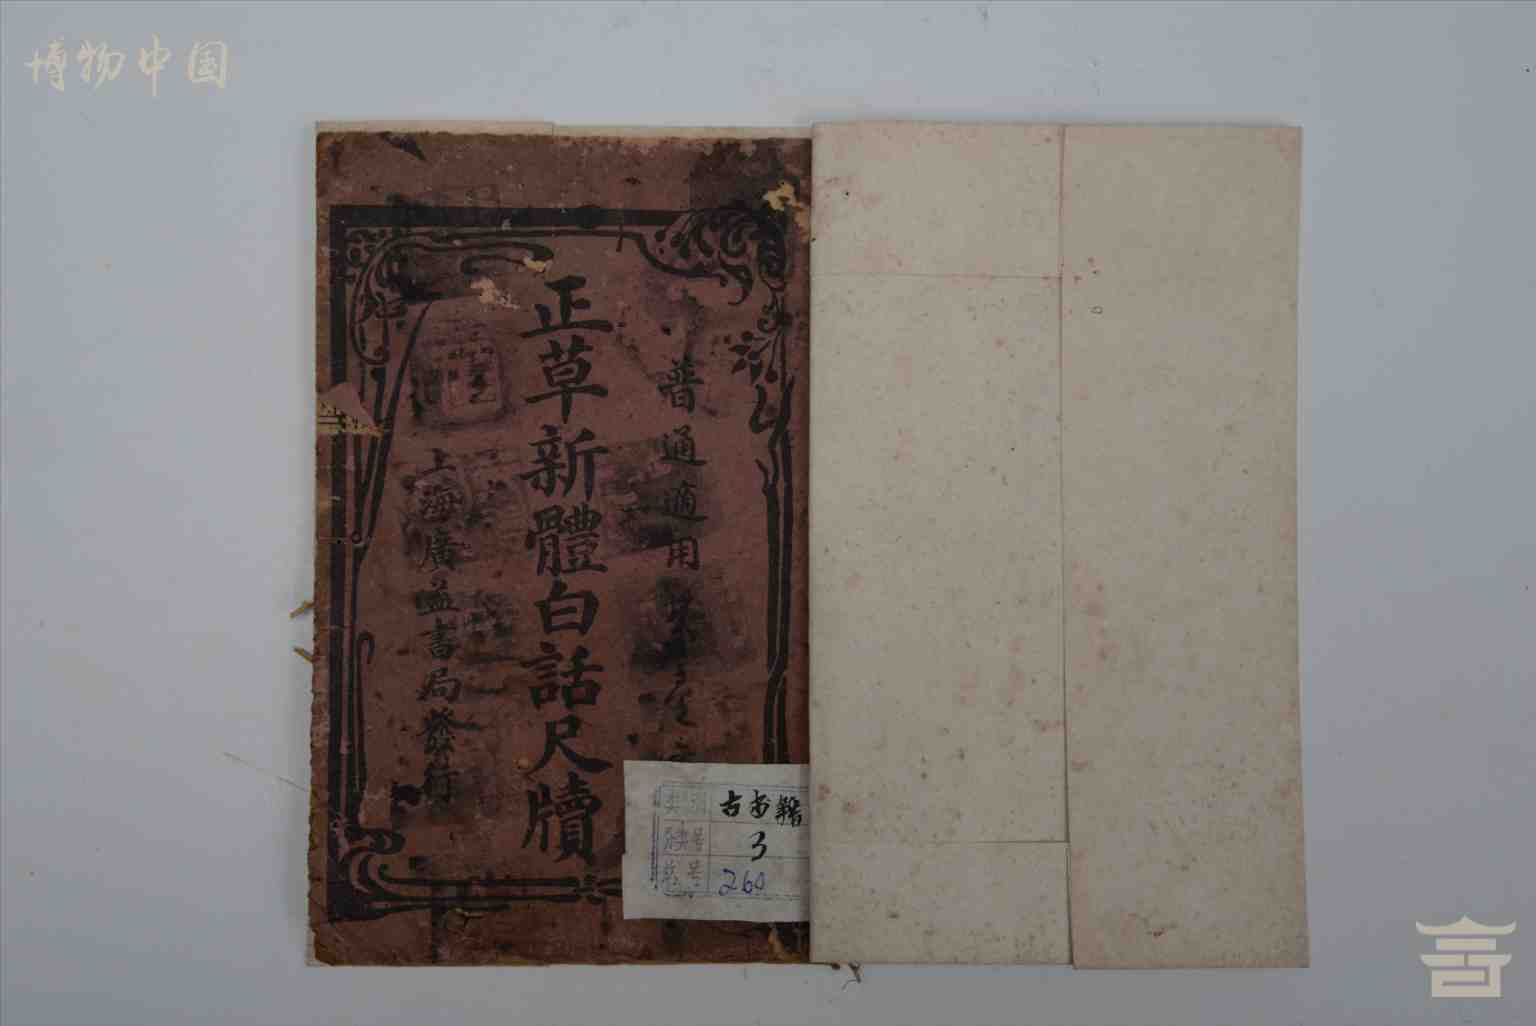 博物中国
普通適用
正草新體白話尺牘
上海廣益書局發行
类别 古书籍
牌号 3
总号 260